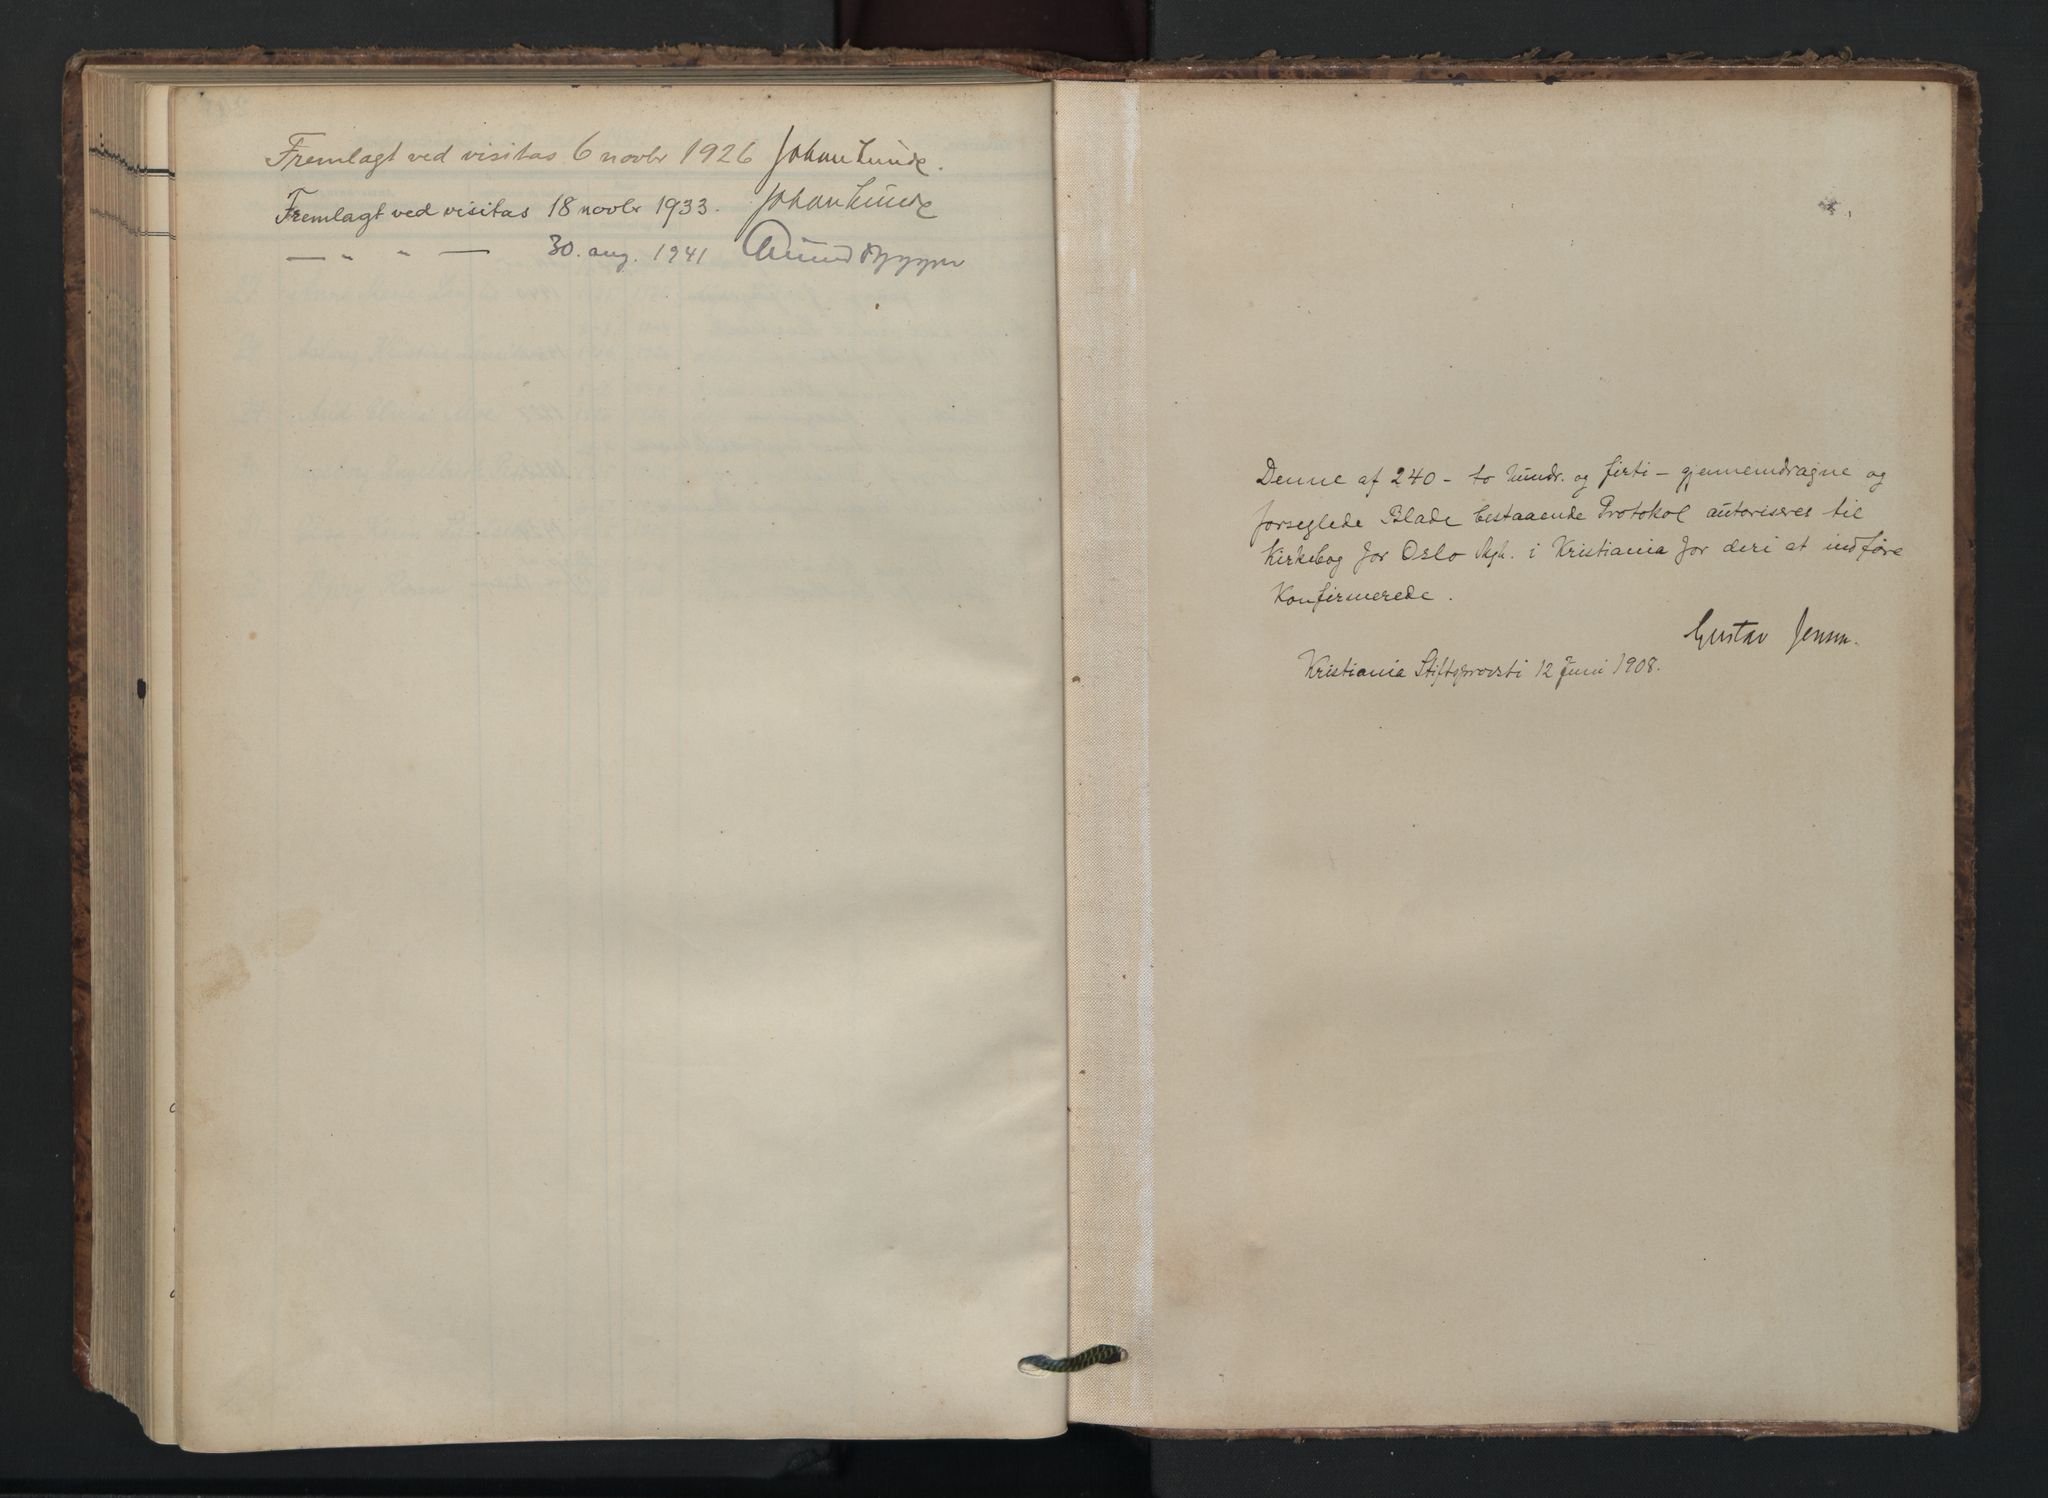 Fremlagt ved visitas 6 novbr 1926 Johan Lunde.
Fremlagt ved visitas 18 novbr 1933. Johan Lunde
— " " — 30. aug. 1941
Denne af 240 - to hundr. og firti - gjennemdragne og
forseglede Blade bestaaende Protokol autoriseres til
Kirkebog for Oslo Mgh. i Kristiania for deri at indføre
Konfirmerede.
Gustav Jensen.
Kristiania Stiftsprovsti 12 Juni 1908.